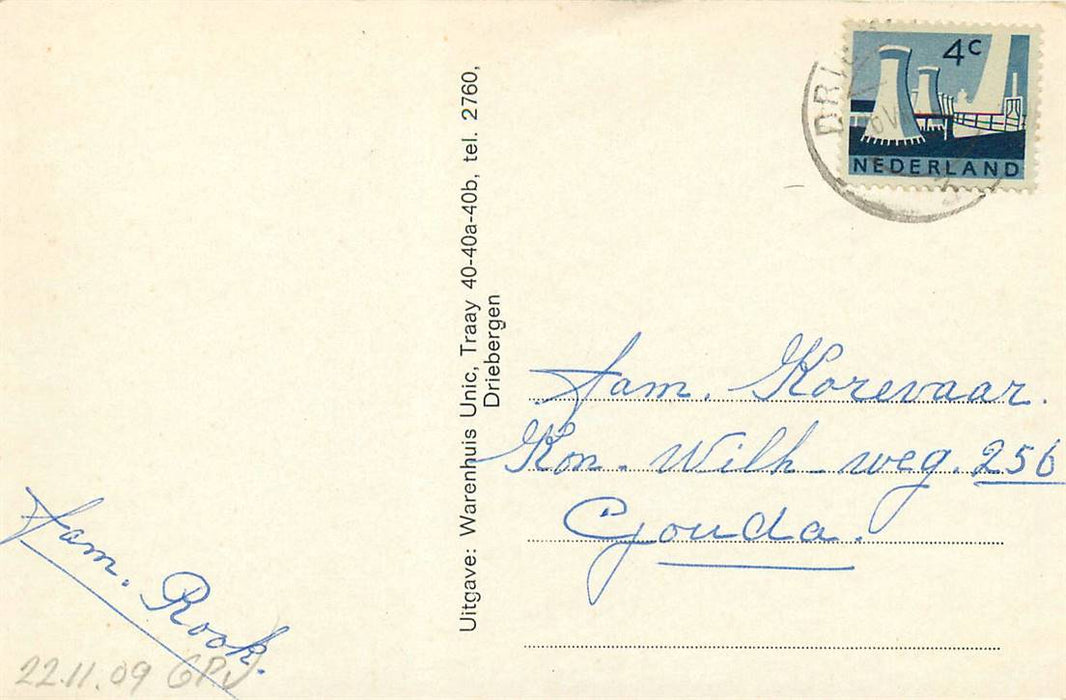 4c
NEDERLAND
Uitgave: Warenhuis Unic, Traay 40-40a-40b, tel. 2760,
Driebergen
fam. Korevaar.
Kon. Wilh. weg. 256
Gouda.
fam. Rook.
22.11.09